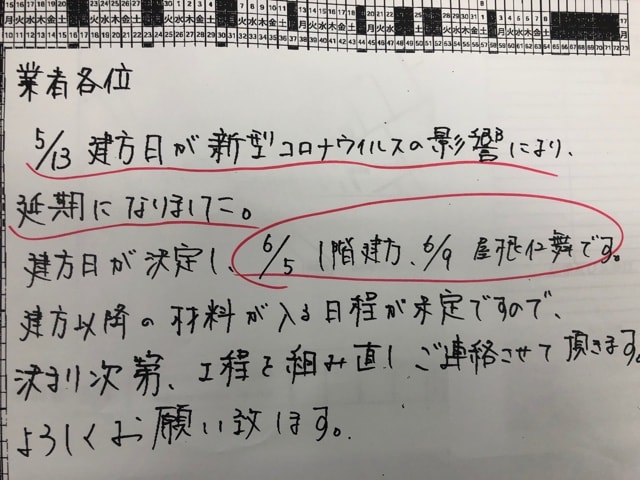 業者各位
5/13 建方日が新型コロナウイルスの影響により、
延期になりました。
建方日が決定し、6/5 1階建方、6/9 屋根仕舞です。
建方以降の材料が入る日程が未定ですので、
決まり次第、工程を組み直しご連絡させて頂きます。
よろしくお願い致します。